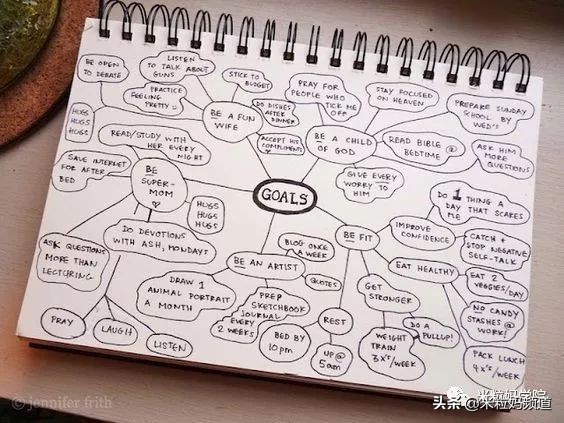 BE OPEN
TO DEBATE
LISTEN
TO TALK ABOUT
GUNS
STICK TO
BUDGET
PRAY FOR
PEOPLE WHO
TICK ME
OFF
STAY FOCUSED
ON HEAVEN
PREPARE SUNDAY
SCHOOL BY
WED'S
PRACTICE
FEELING
PRETTY
HUGS
HUGS
HUGS
BE A FUN
WIFE
DO DISHES
AFTER
DINNER
ACCEPT HIS
COMPLIMENTS
BE A CHILD
OF GOD
READ BIBLE @
BEDTIME
ASK HIM
MORE
QUESTIONS
READ/STUDY WITH
HER EVERY
NIGHT
SAVE INTERNET
FOR AFTER
BED
BE
SUPER-
MOM
GIVE EVERY
WORRY TO
HIM
GOALS
HUGS
HUGS
HUGS
DO 1 THING A
DAY THAT SCARES
ME
DO DEVOTIONS
WITH ASH, MONDAYS
BE FIT
IMPROVE
CONFIDENCE
CATCH +
STOP NEGATIVE
SELF-TALK
ASK QUESTIONS
MORE THAN
LECTURING
BE AN ARTIST
BLOG ONCE
A WEEK
QUOTES
EAT HEALTHY
EAT 2
VEGGIES/DAY
DRAW 1
ANIMAL PORTRAIT
A MONTH
PREP
SKETCHBOOK
JOURNAL
EVERY
2 WEEKS
GET
STRONGER
NO CANDY
STASHES @
WORK!
PRAY
LAUGH
LISTEN
BED BY
10pm
REST
UP @
5am
WEIGHT
TRAIN
3x's/WEEK
DO A
PULLUP!
PACK LUNCH
4x's/WEEK
© jennifer frith
米粒妈学院
头条@米粒妈频道